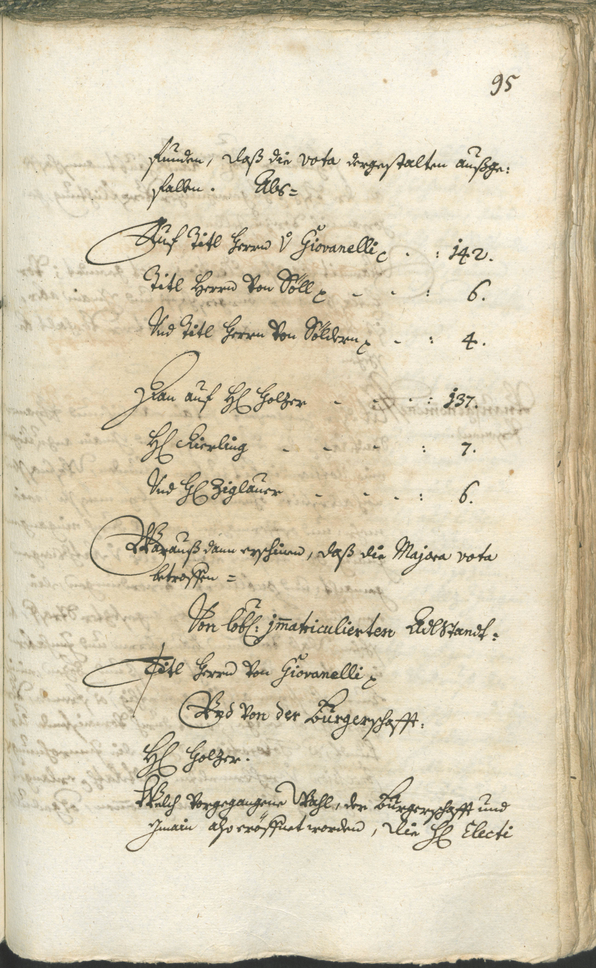 95
funden, daß die vota dergestalten außge:
fallen. Als=
Auf Titl Herrn v Giovanelli . . : 142.
Titl Herrn von Söll - - : 6.
Und Titl Herrn von Söldern - : 4.
Dan auf H Holzer - - . : 137.
H Kierling - - - : 7.
Und H Ziglauer - - . : 6.
Warauß dann erschinen, daß die Majora vota
betroffen =
Von löbl: jmatriculierten AdlStandt:
Titl Herrn von Giovanelli
Und von der Burgerschafft:
H Holzer.
Welch vorgegangene Wahl, der Burgerschafft und
Gmain also eröffnet worden, die H Electi